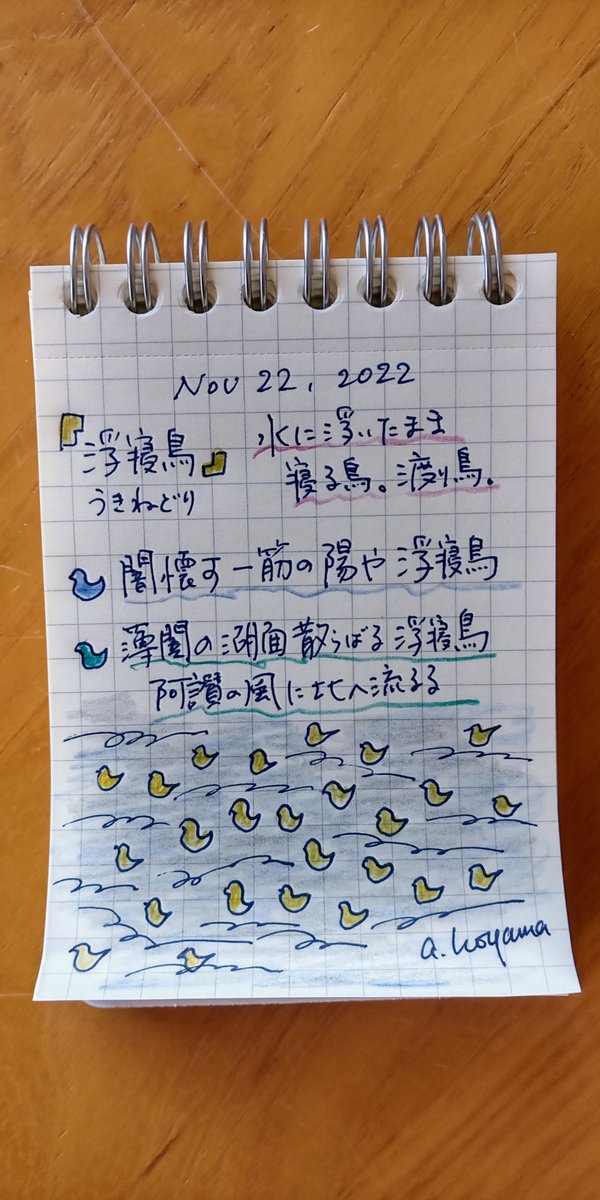 Nov 22, 2022
『浮寝鳥』
うきねどり
水に浮いたまま
寝る鳥。渡り鳥。
闇懐す一筋の陽や浮寝鳥
薄闇の湖面散らばる浮寝鳥
阿讃の風に北へ流るる
a. koyama